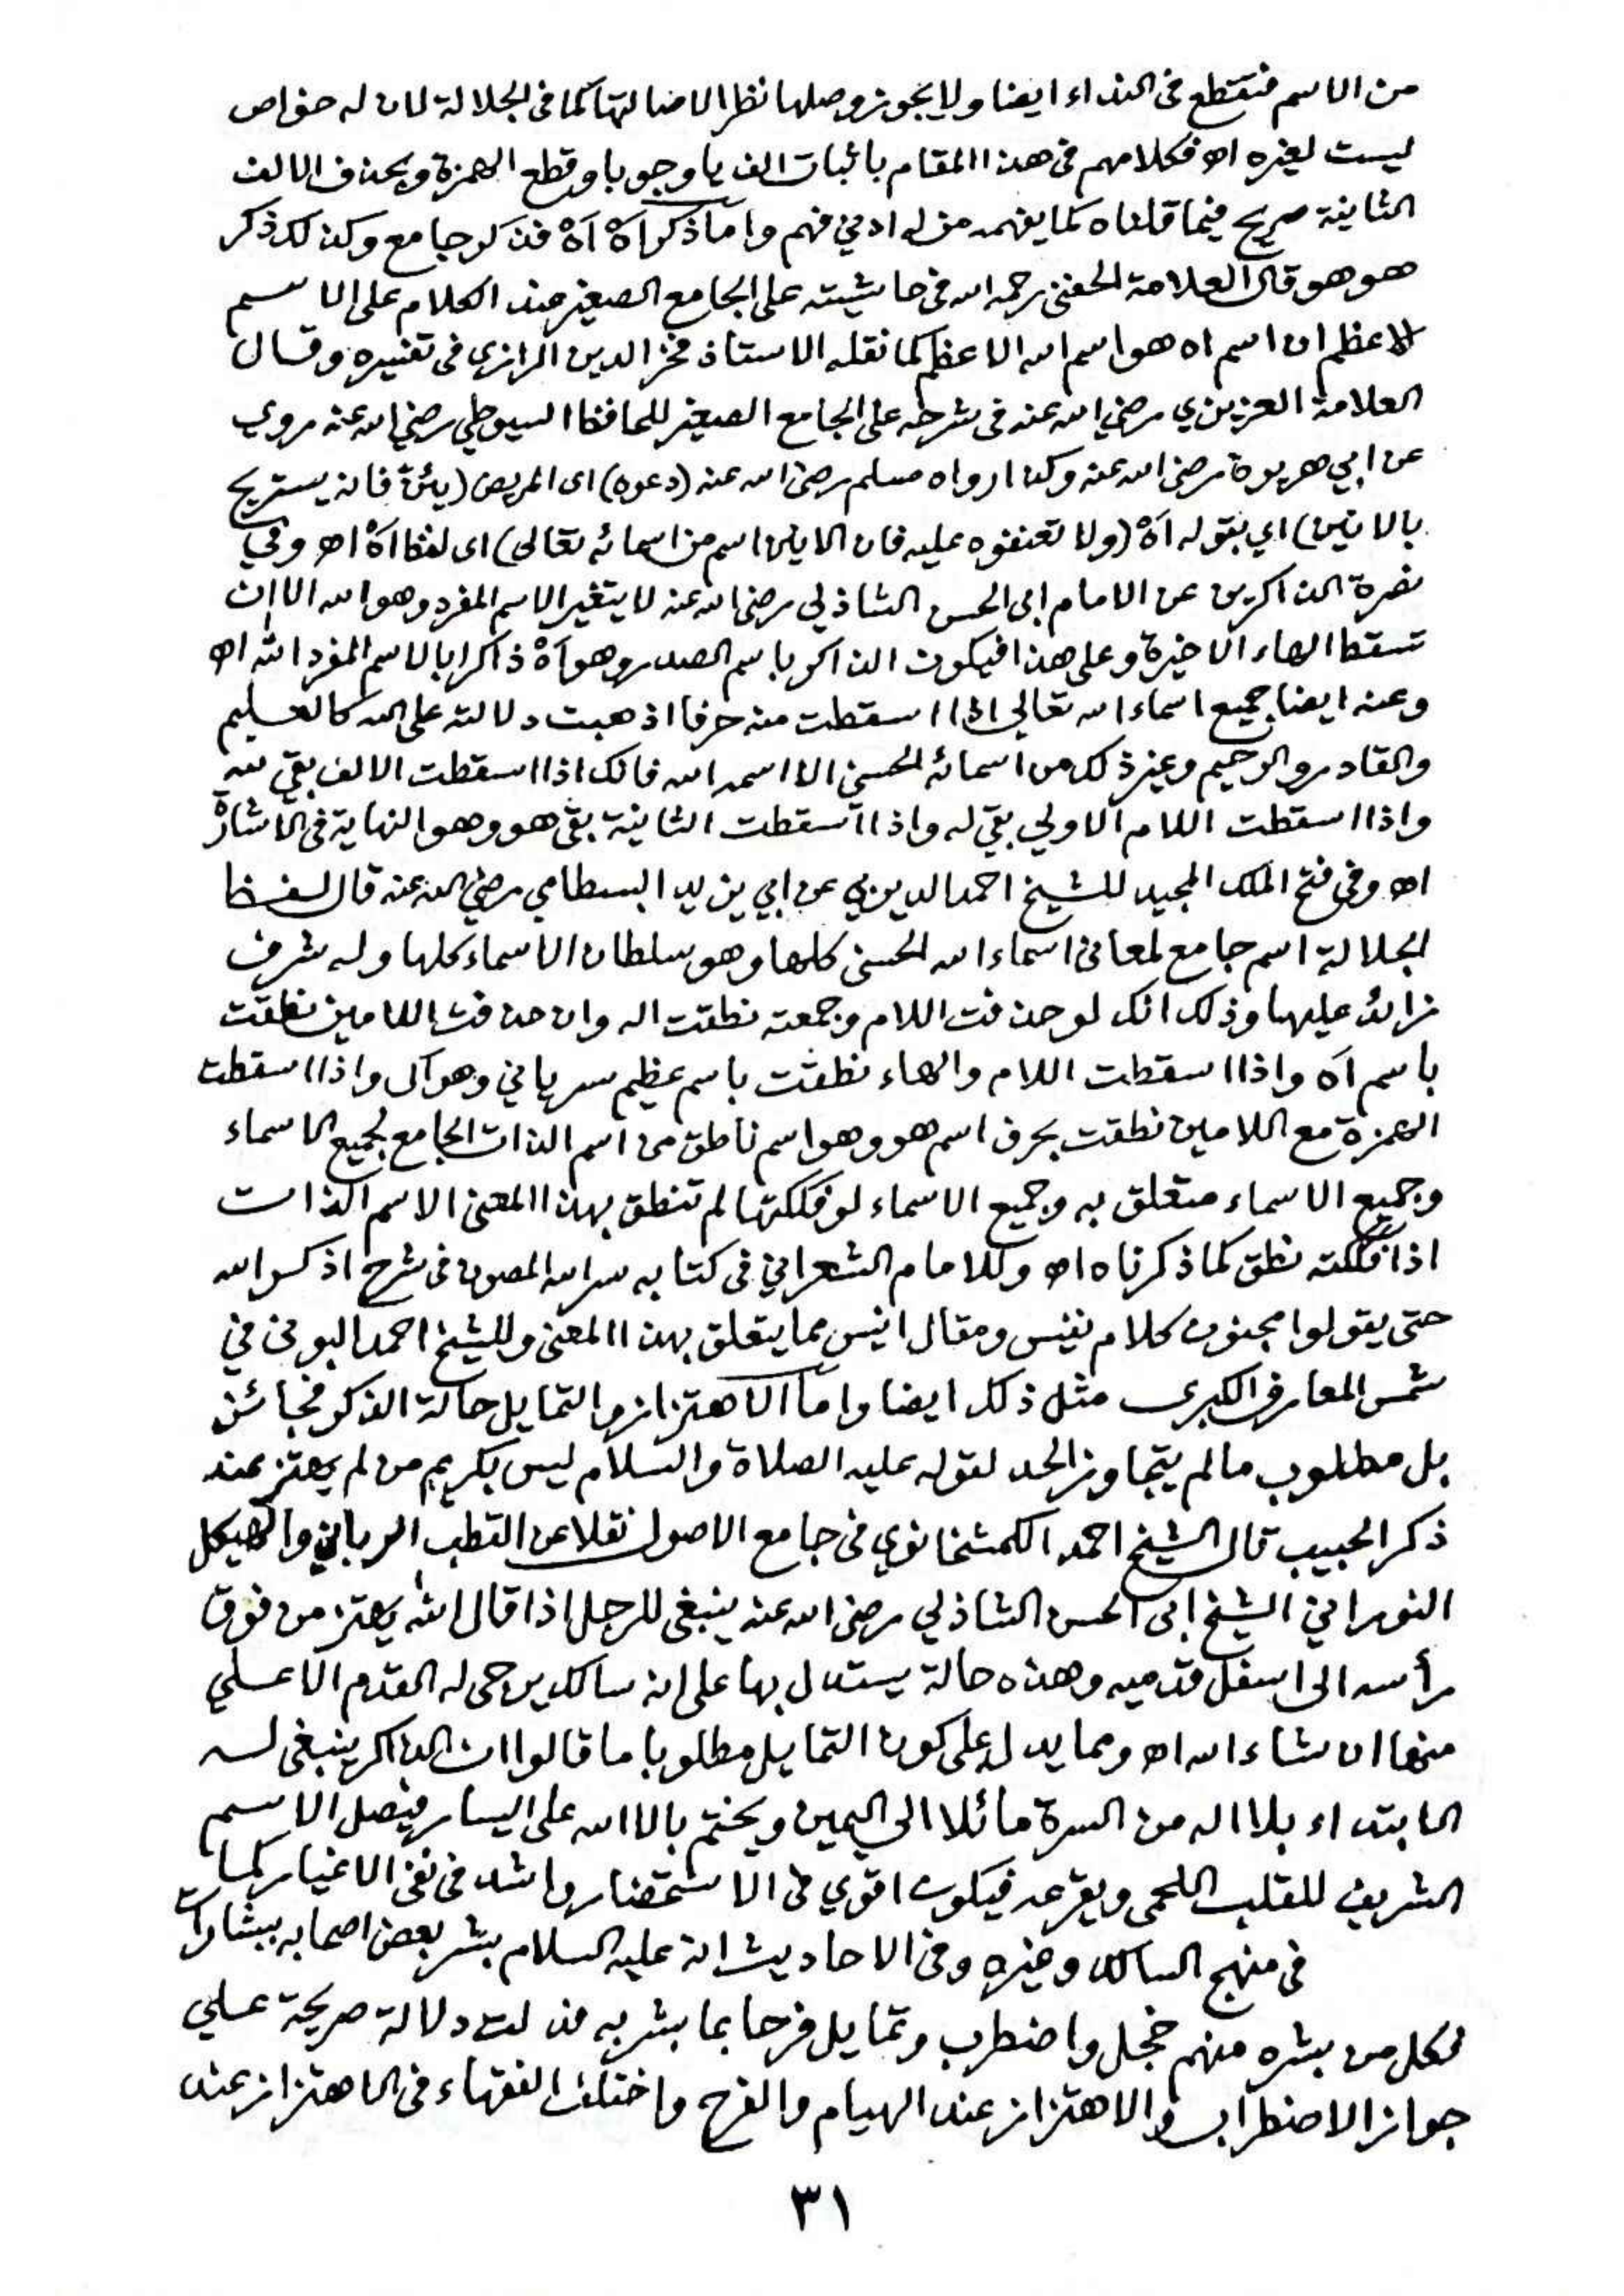 من الاسم فتقطع فى النداء ايضا ولا يجوز وصلها نظرا لاصالتها كما فى الجلالة لان له خواص
ليست لغيره اه فكلامهم فى هذا المقام باثبات الف يا وجوبا وقطع الهمزة وبحذف الالف
الثانية صريح فيما قلناه كما يفهمه من له ادني فهم واما ذكر آهْ آهْ فذكر جامع وكذلك ذكر
هو هو قال العلامة الحفني رحمه الله فى حاشيته على الجامع الصغير عند الكلام على الاسم
الاعظم ان اسم اه هو اسم الله الاعظم كما نقله الاستاذ فخر الدين الرازى فى تفسيره وقال
العلامة العزيزي رضي الله عنه فى شرحه على الجامع الصغير للحافظ السيوطي رضي الله عنه روي
عن ابي هريرة رضى الله عنه وكذا رواه مسلم رضى الله عنه (دعوه) اى المريض (يئن) فانه يستريح
بالانين) اي بقوله آهْ (ولا تعنفوه عليه فان الانين اسم من اسمائه تعالى) اى لفظ آهْ اه وفي
نصرة الذاكرين عن الامام ابى الحسن الشاذلي رضى الله عنه لا يتغير الاسم المفرد وهو الله الا ان
تسقط الهاء الاخيرة وعلى هذا فيكون الذاكر باسم الصدر وهو آهْ ذاكرا بالاسم المفرد الله اه
وعنه ايضا جميع اسماء الله تعالى اذا اسقطت منه حرفا اذهبت دلالته على الله كالعليم
والقادر والرحيم وغير ذلك من اسمائه الحسنى الا اسمه الله فانك اذا اسقطت الالف بقي لله
واذا اسقطت اللام الاولي بقي له واذا اسقطت الثانية بقى هو وهو النهاية فى الاشارة
اه وفى فتح الملك المجيد للشيخ احمد الديربي عن ابي يزيد البسطامي رضي الله عنه قال لفظ
الجلالة اسم جامع لمعانى اسماء الله الحسنى كلها وهو سلطان الاسماء كلها وله شرف
زائد عليها وذلك انك لو حذفت اللام وجمعته نطقت اله وان حذفت اللامين نطقت
باسم آه واذا اسقطت اللام والهاء نطقت باسم عظيم سرياني وهو آل واذا اسقطت
الهمزة مع اللامين نطقت بحرف اسم هو وهو اسم ناطق من اسم الذات الجامع لجميع الاسماء
وجميع الاسماء متعلق به وجميع الاسماء لو فككتها لم تنطق بهذا المعنى الا اسم الذات
اذا فككته نطق كما ذكرناه اه وللامام الشعراني فى كتابه سر الله المصون فى شرح اذكروا الله
حتى يقولوا مجنون كلام نفيس ومقال انيس مما يتعلق بهذا المعنى وللشيخ احمد البونى في
شمس المعارف الكبرى مثل ذلك ايضا واما الاهتزاز والتمايل حالة الذكر فجائز
بل مطلوب ما لم يتجاوز الحد لقوله عليه الصلاة والسلام ليس بكريم من لم يهتز عند
ذكر الحبيب قال الشيخ احمد الكمشخانوي فى جامع الاصول نقلا عن القطب الرباني والهيكل
النوراني الشيخ ابى الحسن الشاذلي رضى الله عنه ينبغى للرجل اذا قال الله يهتز من فوق
رأسه الى اسفل قدميه وهذه حالة يستدل بها على انه سالك يرجى له القدم الاعلي
منها ان شاء الله اه ومما يدل على كون التمايل مطلوبا ما قالوا ان الذاكر ينبغى له
الابتداء بلا اله من السرة مائلا الي اليمين ويختم بالا الله على اليسار فيصل الاسم
الشريف للقلب اللحمى ويقرعه فيكون اقوي فى الاستحضار واشد فى نفى الاغيار كما
فى منهج السالك وغيره وفى الاحاديث انه عليه السلام بشر بعض اصحابه ببشارات
فكل من بشره منهم خجل واضطرب وتمايل فرحا بما بشر به فدلت دلالة صريحة علي
جواز الاضطراب والاهتزاز عند الهيام والفرح واختلف الفقهاء فى الاهتزاز عند
٣١